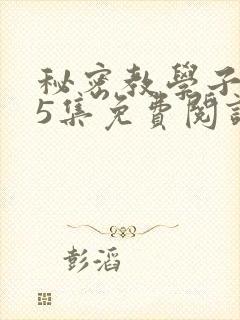 秘密教學子
5集免費閱
彭滔